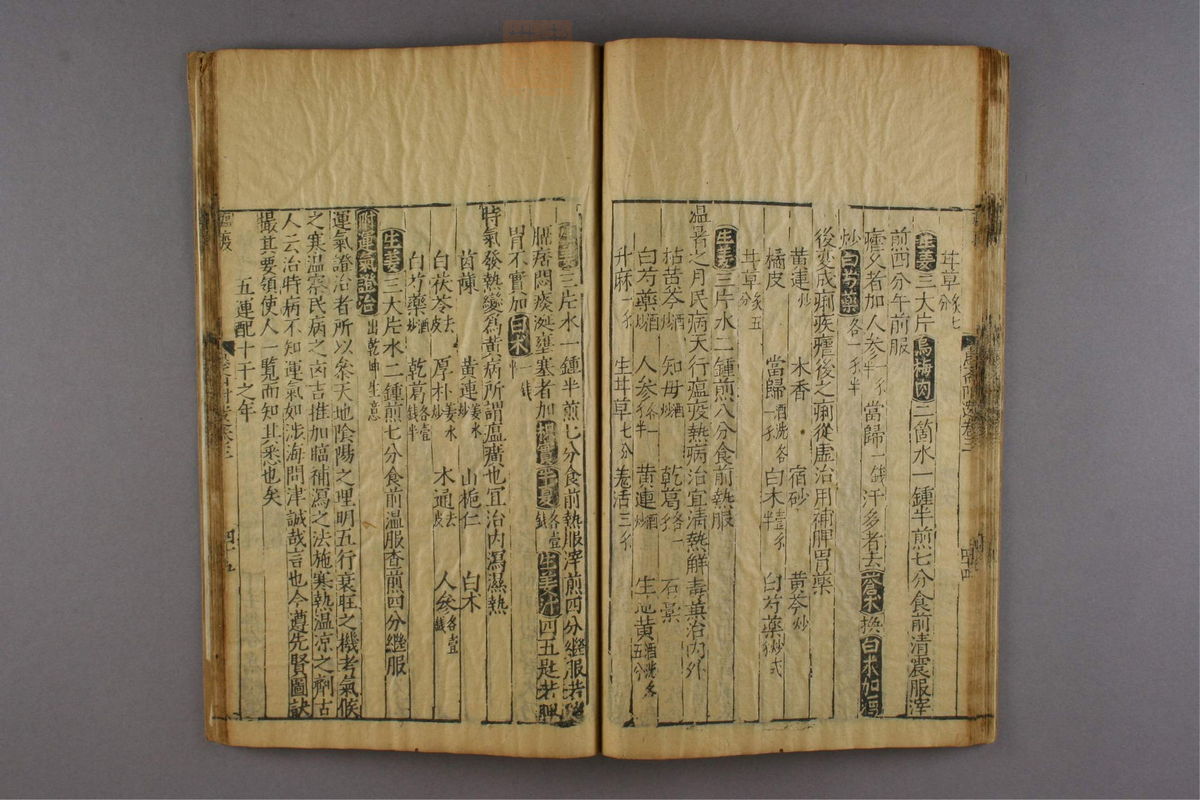 甘草炙七分
生姜三大片烏梅肉二箇水一鍾半煎七分食前清震服滓
煎四分午前服
瘧久者加人參一錢半當歸一錢汗多者去蒼术換白术加
炒白芍藥各一錢半
後変成痢疾瘧後之痢從虛治用補脾胃藥
黄連炒 木香 宿砂 黄芩炒
橘皮 當歸酒洗各一錢 白术壹錢半 白芍藥炒弍錢
甘草炙五分
生姜三片水二鍾煎八分食前熱服
温暑之月民病天行瘟疫熱病治宜清熱觧毒兼治内外
枯苦芩酒炒 知母酒炒 乾葛各一錢 石羔
白芍藥酒炒 人參各一錢半 黄連酒炒 生地黄酒洗各五分
升麻一錢 生甘草七分 羗活三錢
生姜三片水一鍾半煎七分食前熱服滓煎四分繼服若
膈痞悶痰涎壅塞者加枳實半夏各壹錢生姜汁四五匙若脾
胃不實加白术一錢
時氣發熱變為黄病所謂瘟癀也宜治内瀉濕熱
茵蔯 黄連姜水炒 山梔仁 白术
白茯苓去皮 厚朴姜水炒 木通去皮 人參各壹錢
白芍藥酒炒 乾葛各壹錢半
生姜三大片水二鍾煎七分食前温服查煎四分繼服
附運氣證治出乾坤生意
運氣證治者所以叅天地陰陽之理明五行衰旺之機考氣候
之寒温察民病之凶吉推加臨補瀉之法施寒熱温凉之劑古
人云治時病不知運氣如涉海問津誠哉言也今遵先賢圖訣
撮其要領使人一覧而知其悉也矣
五運配十干之年